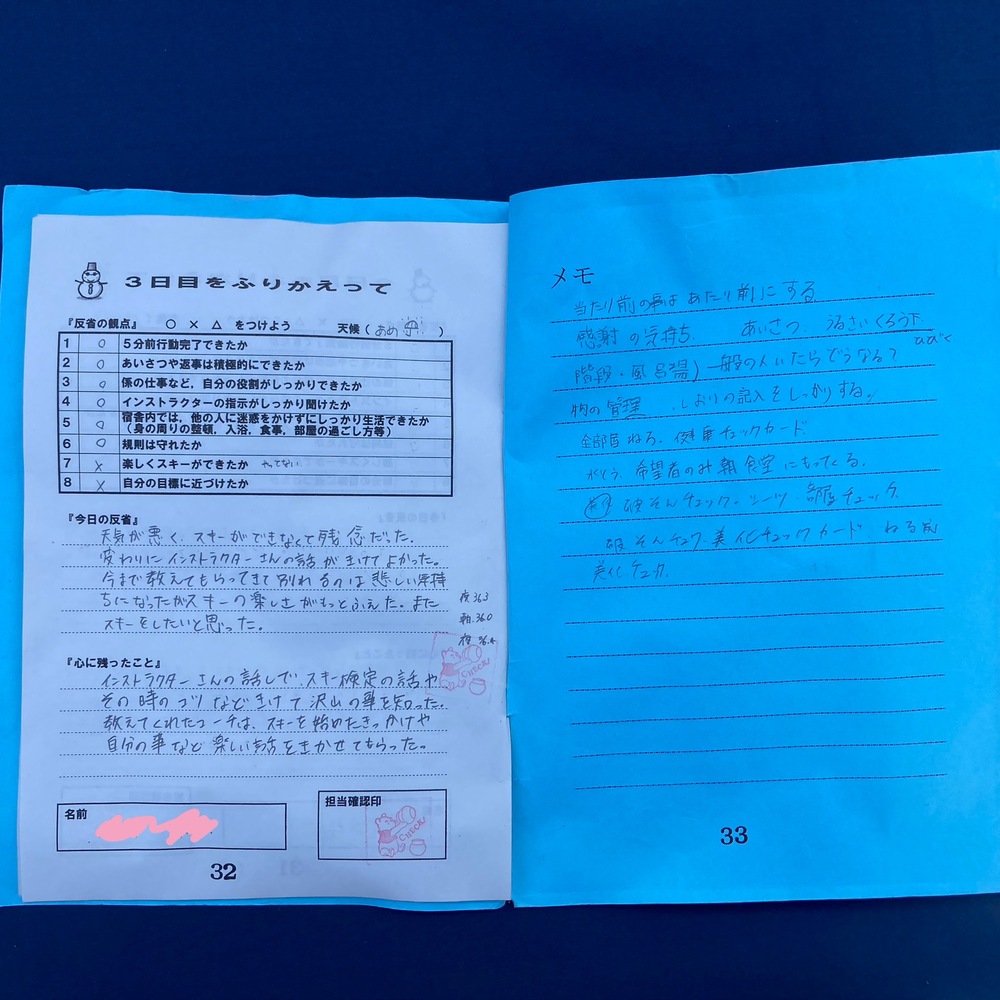 3日目をふりかえって
『反省の観点』 ○ × △ をつけよう 天候(あめ)
1 ○ 5分前行動完了できたか
2 ○ あいさつや返事は積極的にできたか
3 ○ 係の仕事など,自分の役割がしっかりできたか
4 ○ インストラクターの指示がしっかり聞けたか
5 ○ 宿舎内では,他の人に迷惑をかけずにしっかり生活できたか
(身の周りの整頓,入浴,食事,部屋の過ごし方等)
6 ○ 規則は守れたか
7 × 楽しくスキーができたか やってない
8 × 自分の目標に近づけたか
『今日の反省』
天気が悪く、スキーができなくて残念だった。
変わりにインストラクターさんの話がきけてよかった。
今まで教えてもらってきて別れるのは悲しい気持
ちになったがスキーの楽しさがもっとふえた。また
スキーをしたいと思った。
夜36.3
朝.36.0
夜 36.4
『心に残ったこと』
インストラクターさんの話しで、スキー検定の話や
その時のコツなどきけて沢山の事を知った。
教えてくれたコーチは、スキーを始めたきっかけや
自分の事など楽しい話をきかせてもらった。
名前
担当確認印
CHECK!
32
メモ
当たり前の事はあたり前にする
感謝の気持ち. あいさつ. うるさい
ひびく
階段・風呂場) 一般の人いたらどうなる?
物の管理 . しおりの記入をしっかりする。
全部屋ねる. 健康チェックカード
希望者のみ朝食堂にもってくる.
破そんチェック・シーツ・部屋チェック.
破そんチェック.美化チェックカード ねる前
美化チェック.
33